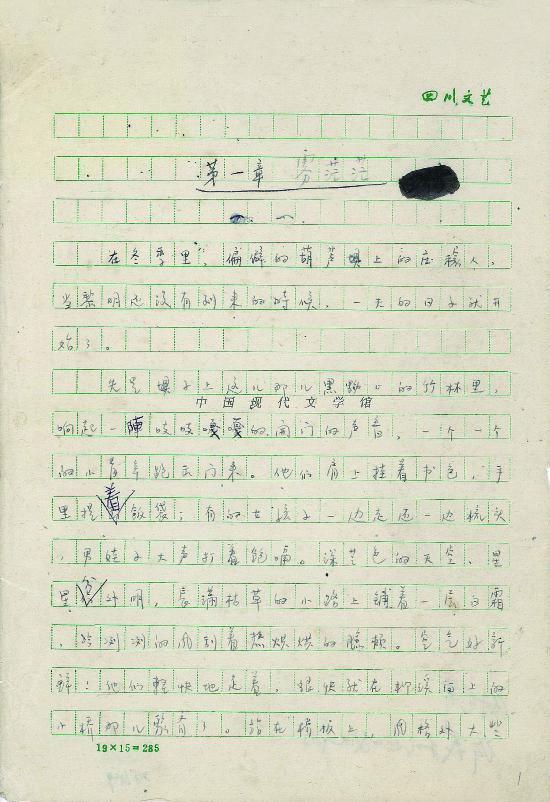 四川文艺
第一章 雾茫茫
一
在冬季里，偏僻的葫芦坝上的庄稼人，
当黎明还没有到来的时候，一天的日子就开
始了。
先是坝子上这儿那儿黑黝黝的竹林里，
中国现代文学馆
响起一阵吱吱嘎嘎的开门的声音，一个一个
的小青年跑出门来。他们肩上挂着书包，手
里提着饭袋；有的女孩子一边走还一边梳头
，男娃子大声打着饱嗝。深蓝色的天空，星
星分外明，长满枯草的小路上铺着一层白霜
，冷浏浏的风刮着热烘烘的脸颊。空气好新
鲜！他们轻快地走着，很快就在柳溪河上的
小桥那儿聚齐了。站在桥板上，风格外大些
19×15=285
1